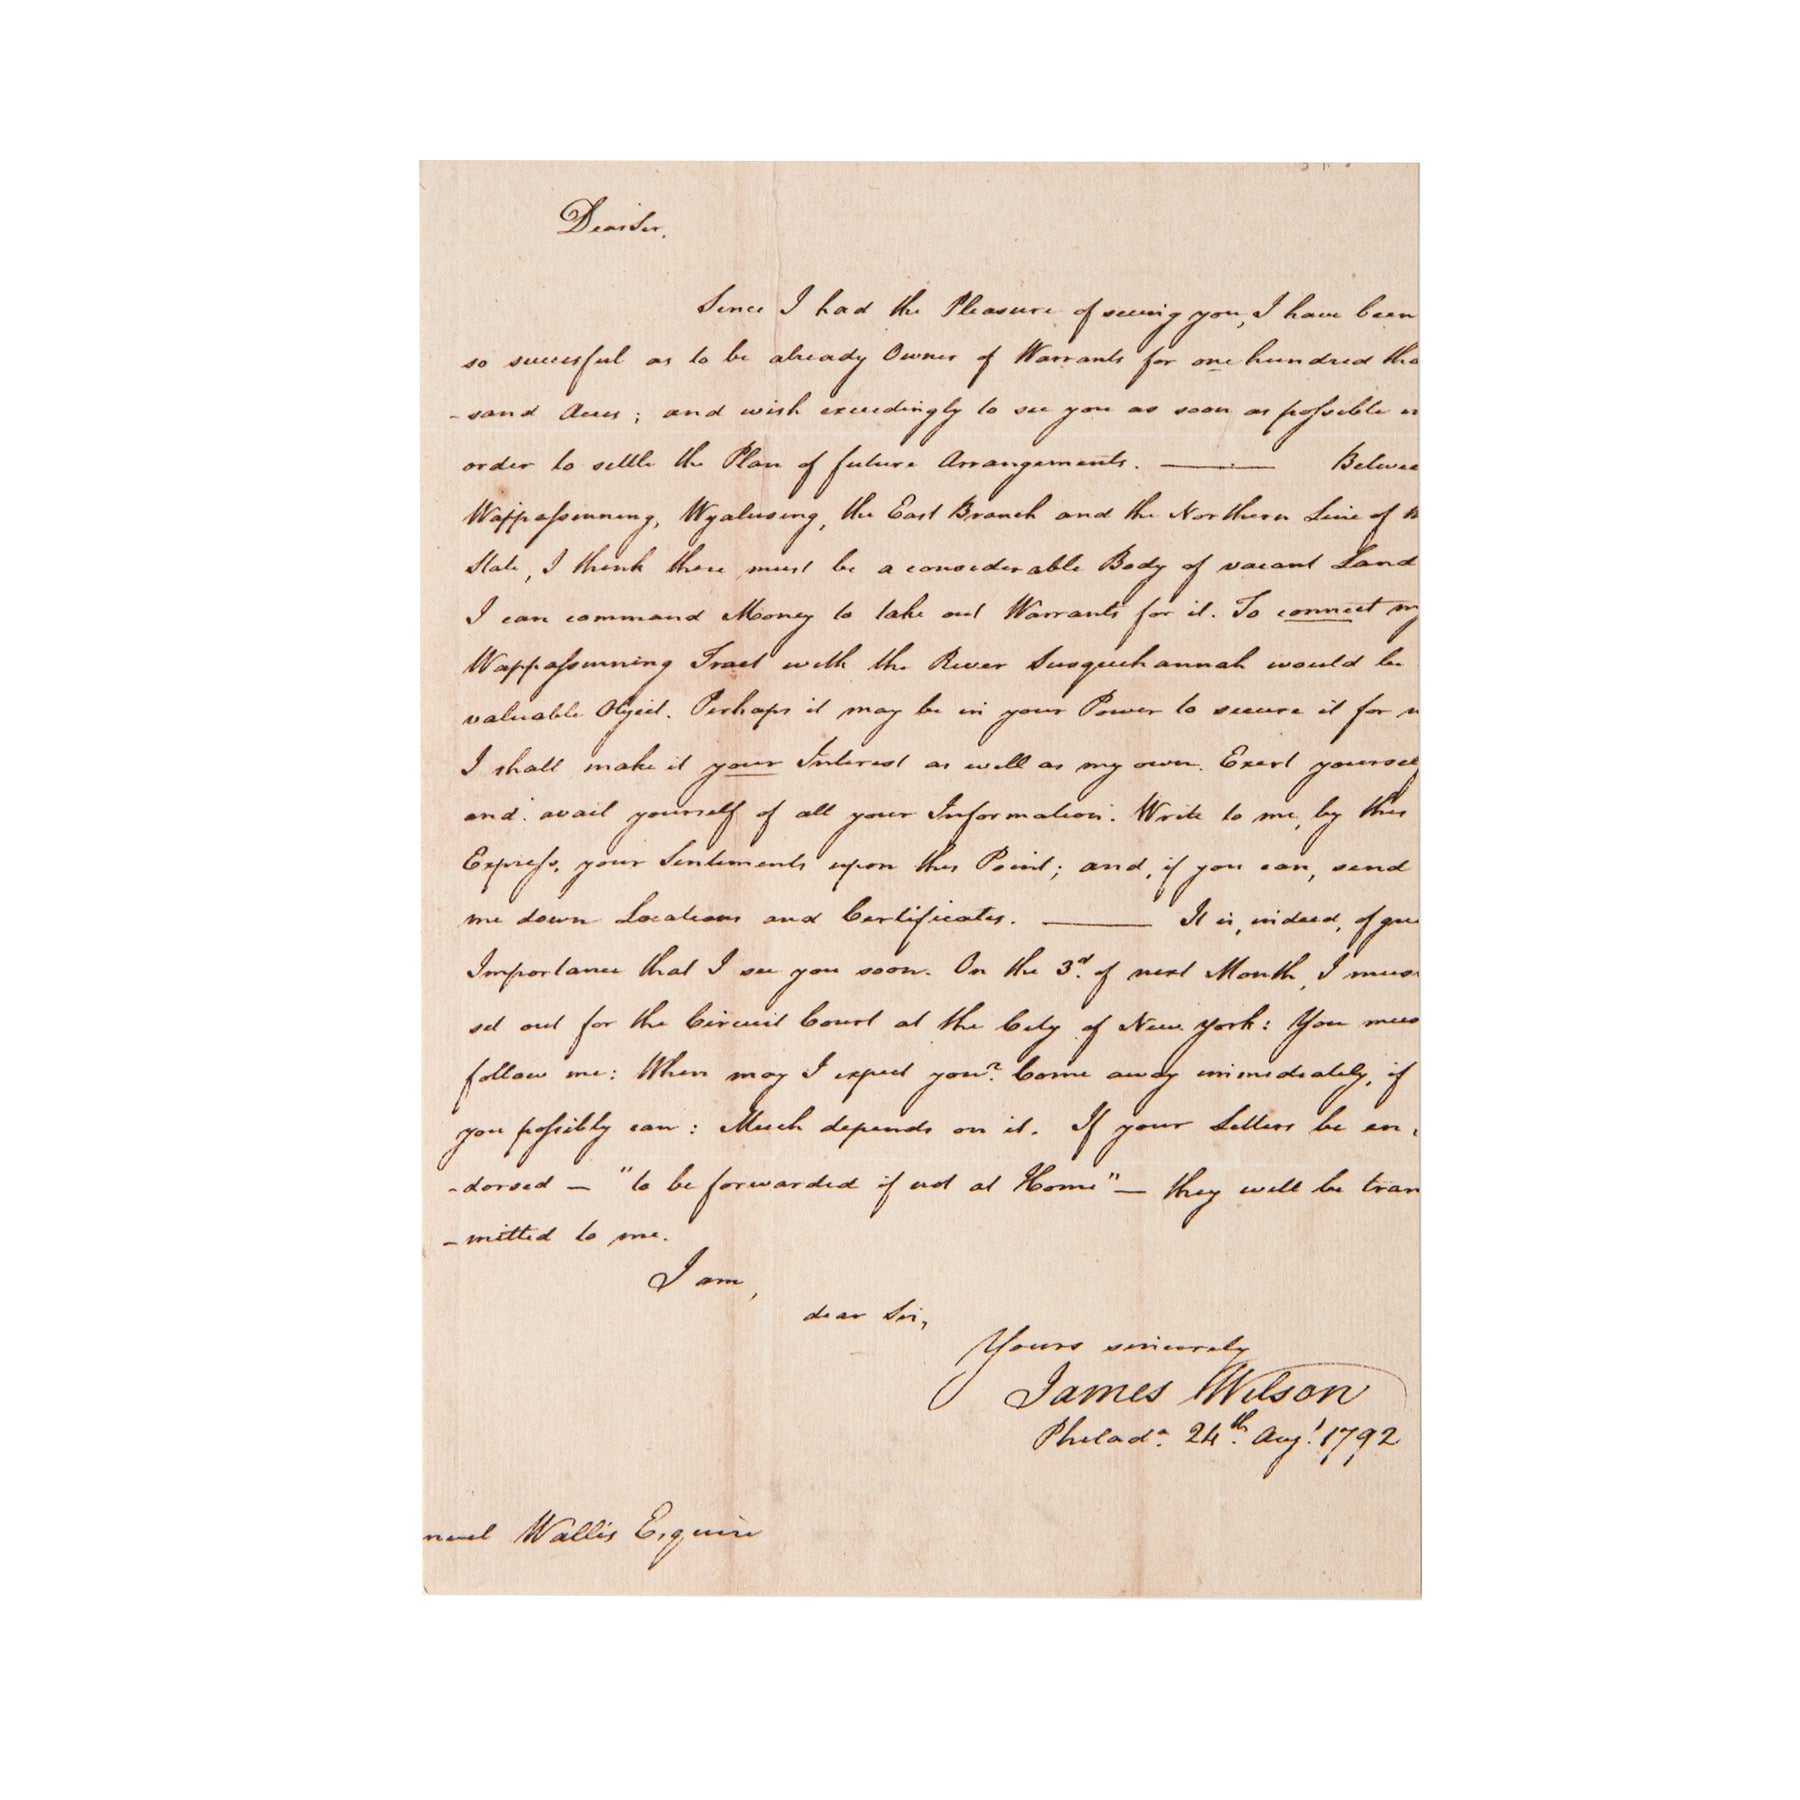 Dear Sir,
Since I had the Pleasure of seeing you, I have been
so successful as to be already Owner of Warrants for one hundred tho
-sand Acres; and wish exceedingly to see you as soon as possible in
order to settle the Plan of future Arrangements. — Betwee
Wappassinning, Wyalusing, the East Branch and the Northern Line of
State, I think there must be a considerable Body of vacant Land
I can command Money to take out Warrants for it. To connect my
Wappassinning Tract with the River Susquehannah would be
valuable Object. Perhaps it may be in your Power to secure it for
I shall make it your Interest as well as my own. Exert yoursel
and avail yourself of all your Information. Write to me, by this
Express, your Sentiments upon this Point; and, if you can, send
me down Locations and Certificates. — It is, indeed, of gre
Importance that I see you soon. On the 3d. of next Month, I mus
set out for the Circuit Court at the City of New York: You mus
follow me: When may I expect you? Come away immediately, if
you possibly can: Much depends on it. If your Letters be en-
-dorsed — "to be forwarded if not at Home" — they will be tran
-mitted to me.
I am,
dear Sir,
Yours sincerely
James Wilson
Philada. 24th. Augt. 1792
muel Wallis Esquire